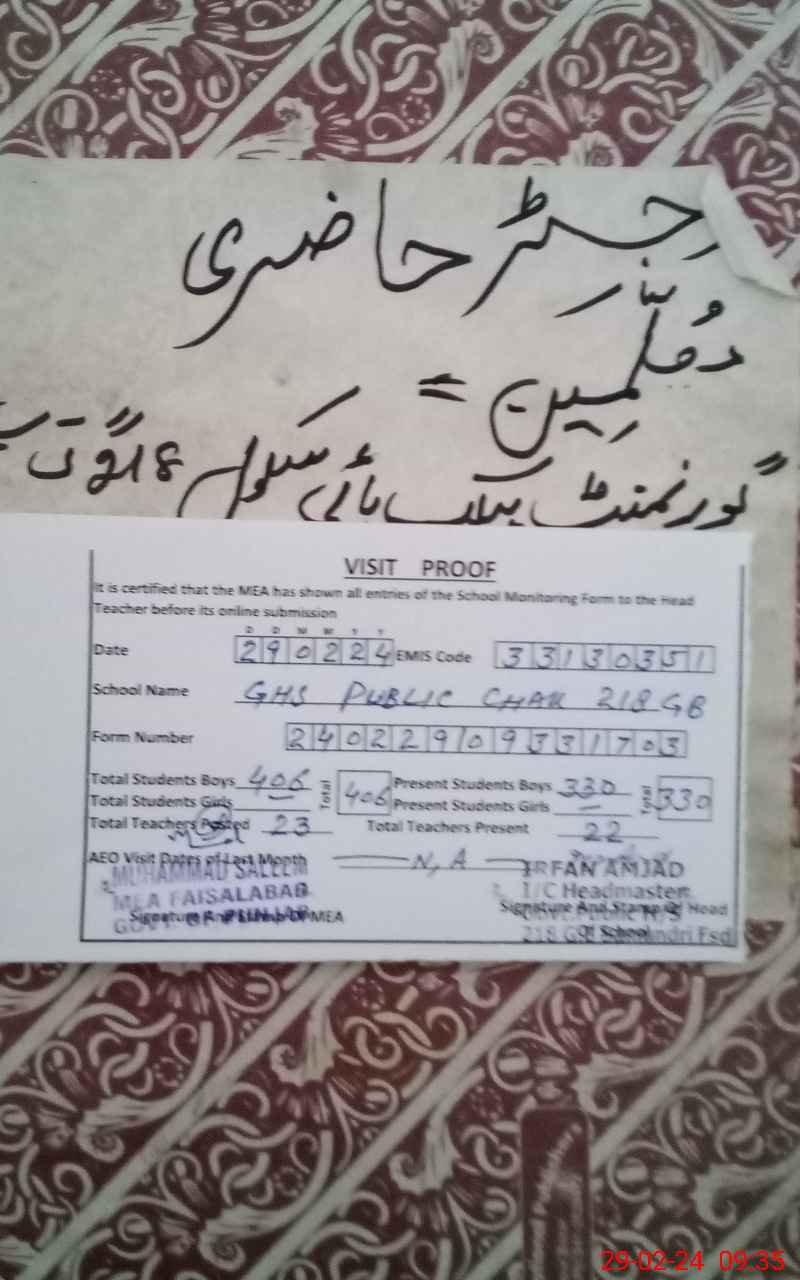 رجسٹر حاضری
معلمین =
گورنمنٹ پبلک ہائی سکول 218 گ ب
VISIT PROOF
It is certified that the MEA has shown all entries of the School Monitoring Form to the Head
Teacher before its online submission
D D M M Y Y
Date 290224 EMIS Code 33130351
School Name GHS PUBLIC CHAK 218 GB
Form Number 24022909331703
Total Students Boys 406 Total 406 Present Students Boys 330 330
Total Students Girls — Present Students Girls —
Total Teachers Posted 23 Total Teachers Present 22
AEO Visit Dates of Last Month N,A
MUHAMMAD SALEEM
MEA FAISALABAD
GOVT. OF PUNJAB
Signature And Stamp Of MEA
IRFAN AMJAD
I/C Headmaster
Signature And Stamp Of Head
Of School
218 GB Samundri Fsd
29-02-24 09:35